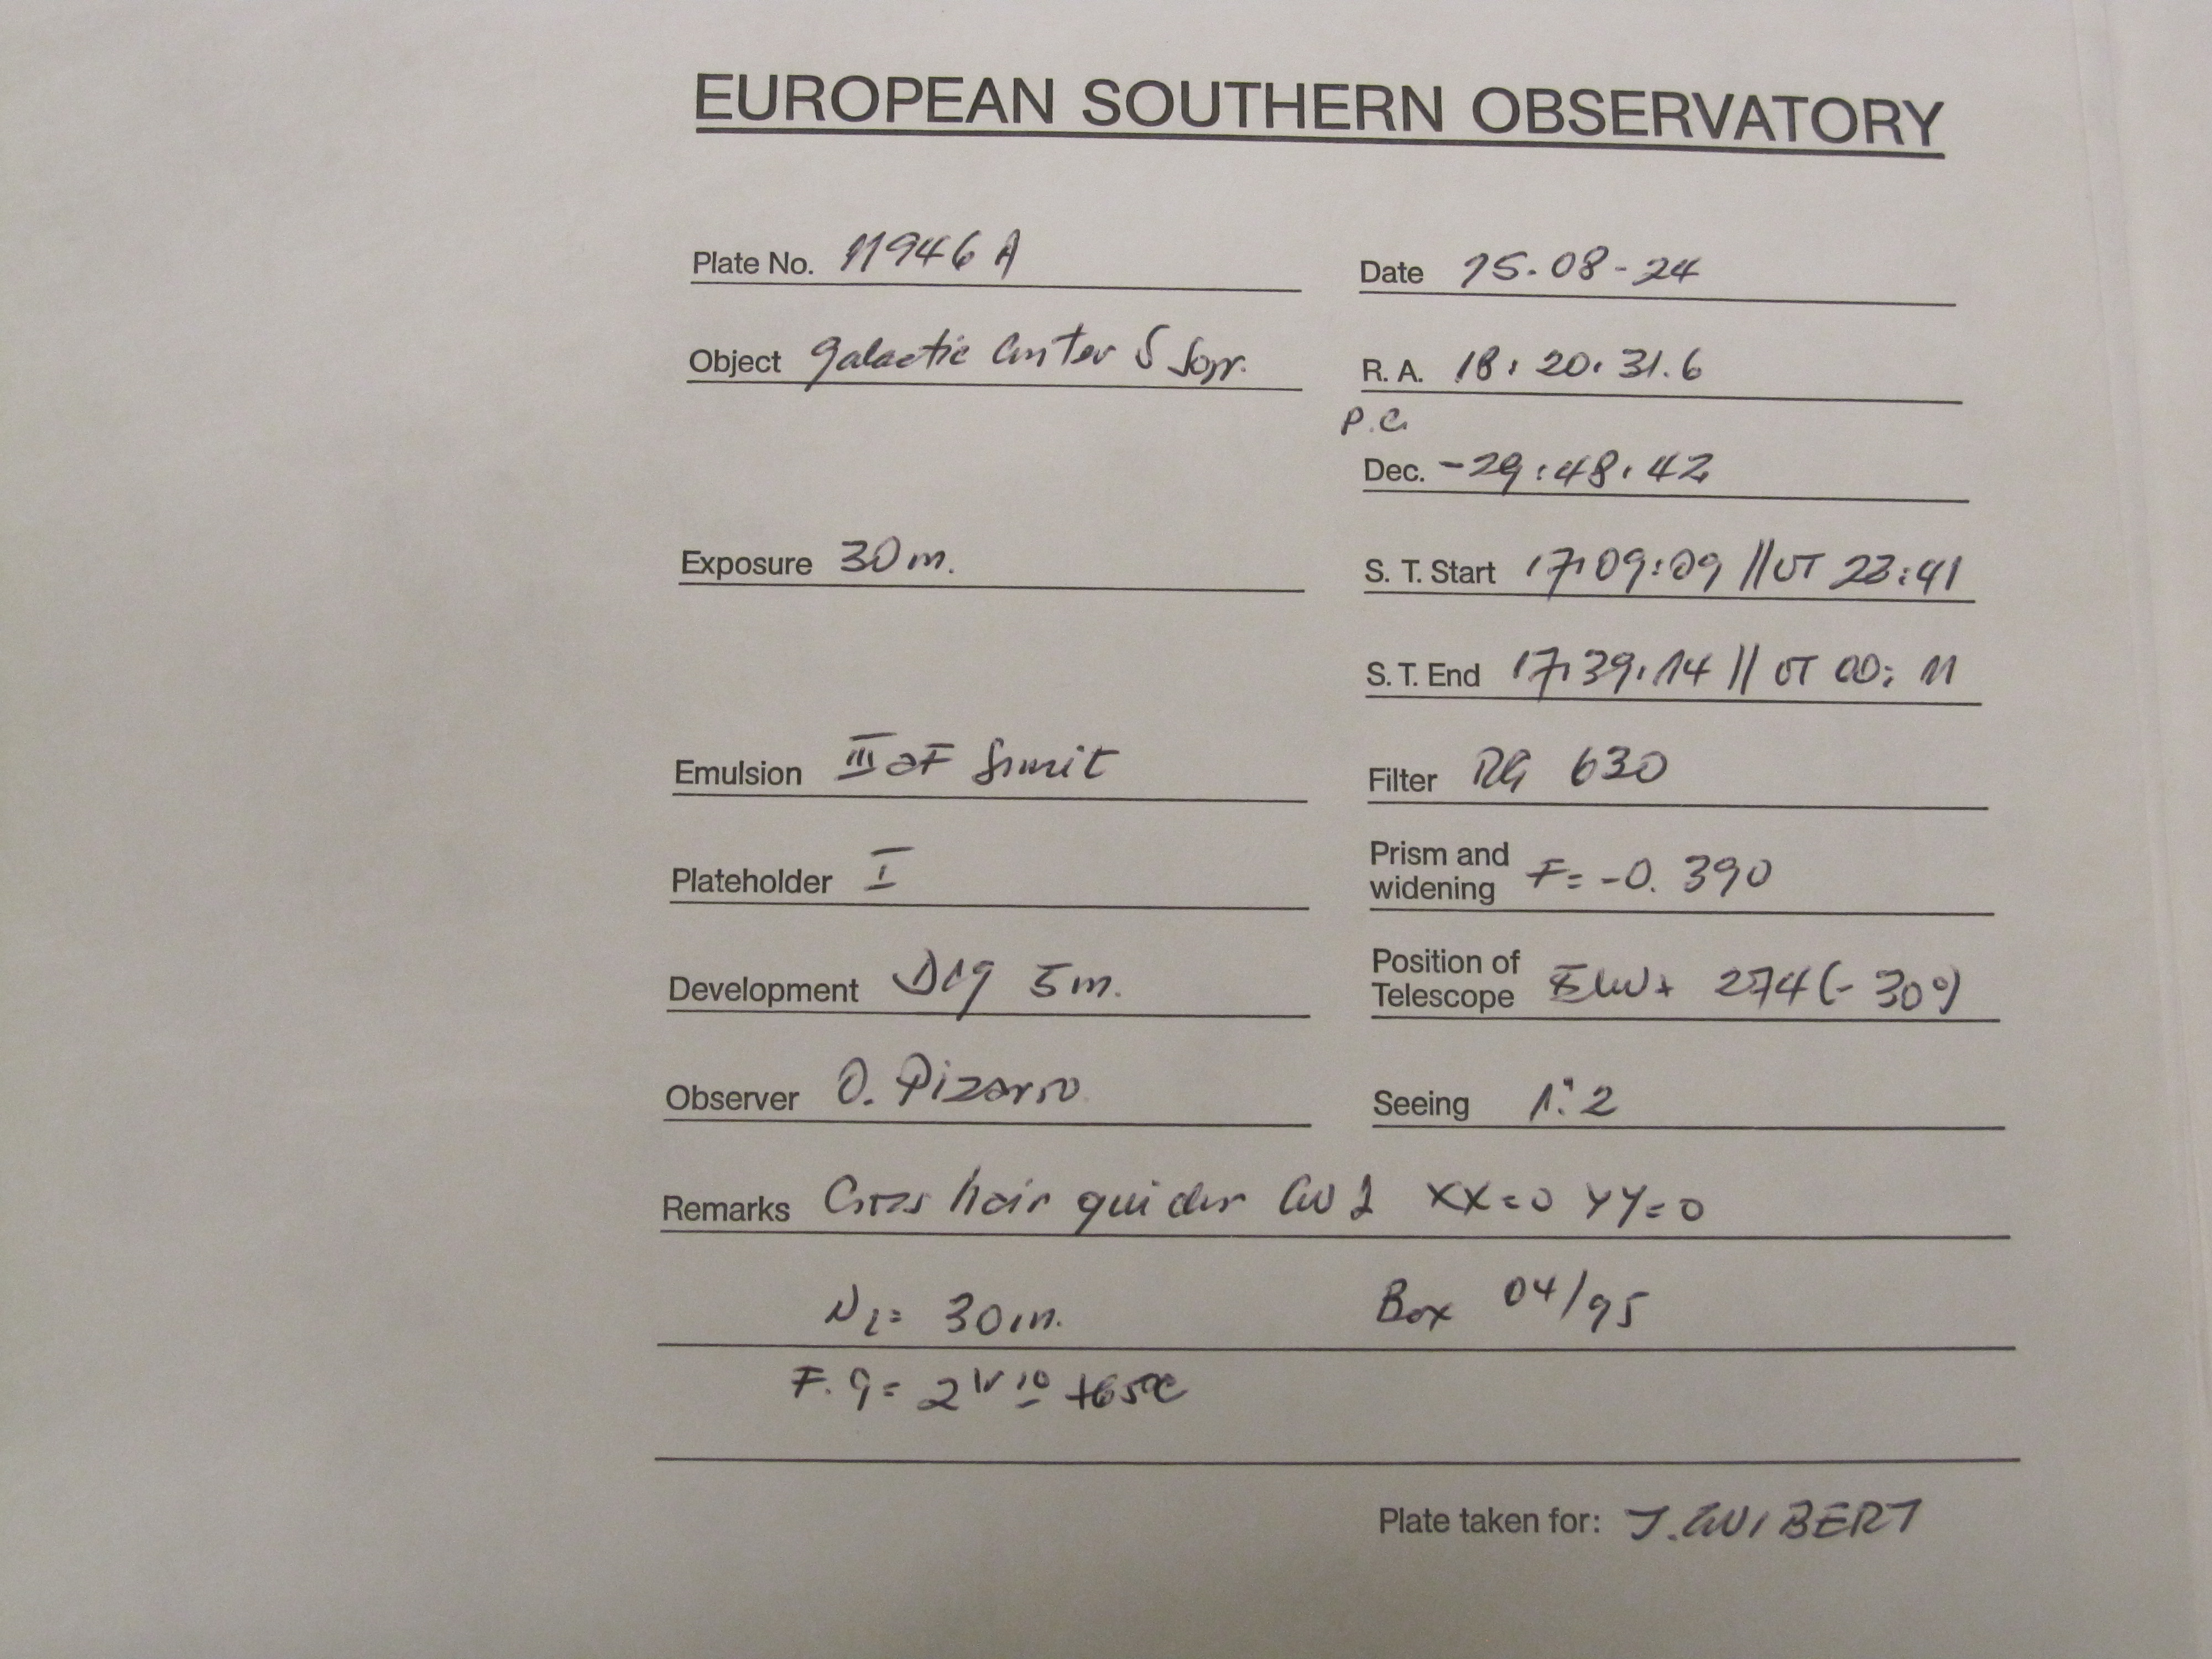 EUROPEAN SOUTHERN OBSERVATORY
Plate No. 11946 A
Date 95-08-24
Object galactic Center S
R. A. 18: 20: 31.6
P.C.
Dec. -29:48:42
Exposure 30m.
S. T. Start 17:09:09 // UT 23:41
S. T. End 17:39:14 // UT 00: 11
Emulsion III aF
Filter RG 630
Plateholder I
Prism and widening F= -0. 390
Development D19 5m.
Position of Telescope 274 (- 30°)
Observer O. Pizarro
Seeing 1": 2
Remarks Cross hair guider XX=0 YY=0
N2= 30m. Box 04/95
+65°C
Plate taken for: J. GUIBERT